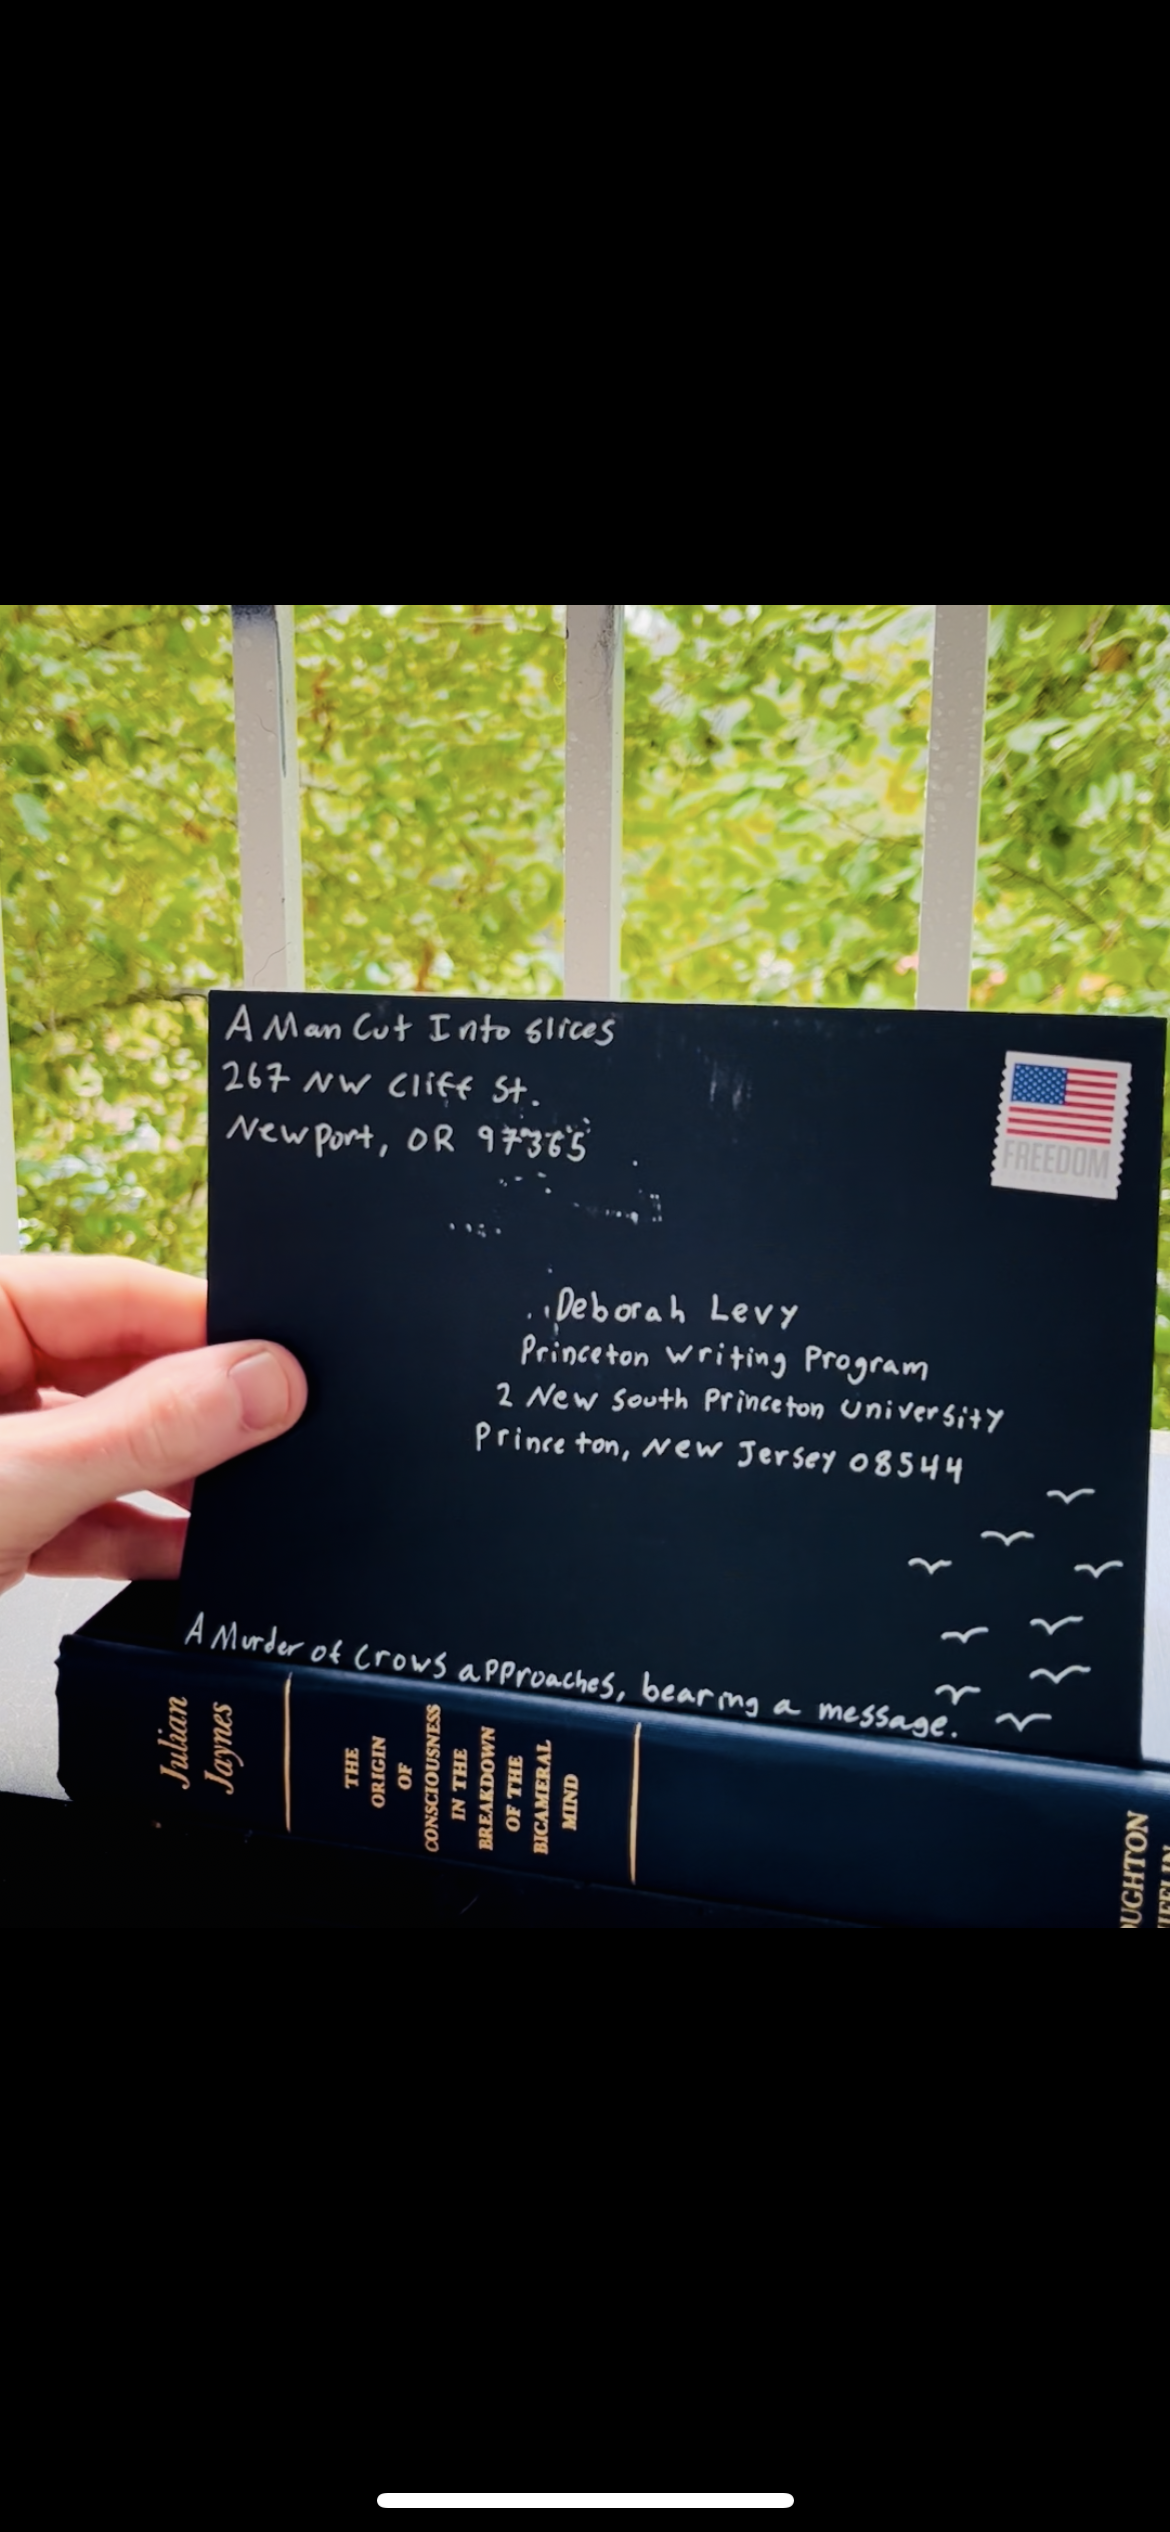 A Man Cut Into slices
267 NW Cliff St.
Newport, OR 97365
FREEDOM
Deborah Levy
Princeton Writing Program
2 New South Princeton University
Princeton, New Jersey 08544
A Murder of Crows approaches, bearing a message.
Julian
Jaynes
THE
ORIGIN
OF
CONSCIOUSNESS
IN THE
BREAKDOWN
OF THE
BICAMERAL
MIND